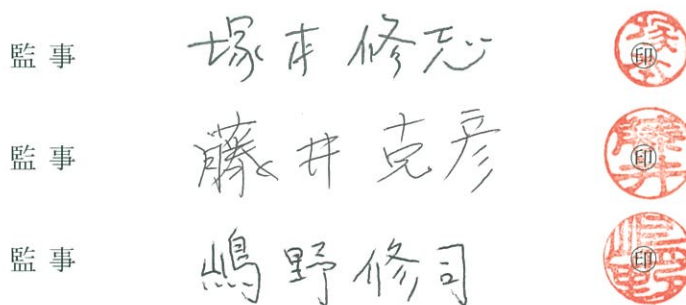 監事 塚本修志 印
監事 藤井克彦 印
監事 嶋野修司 印